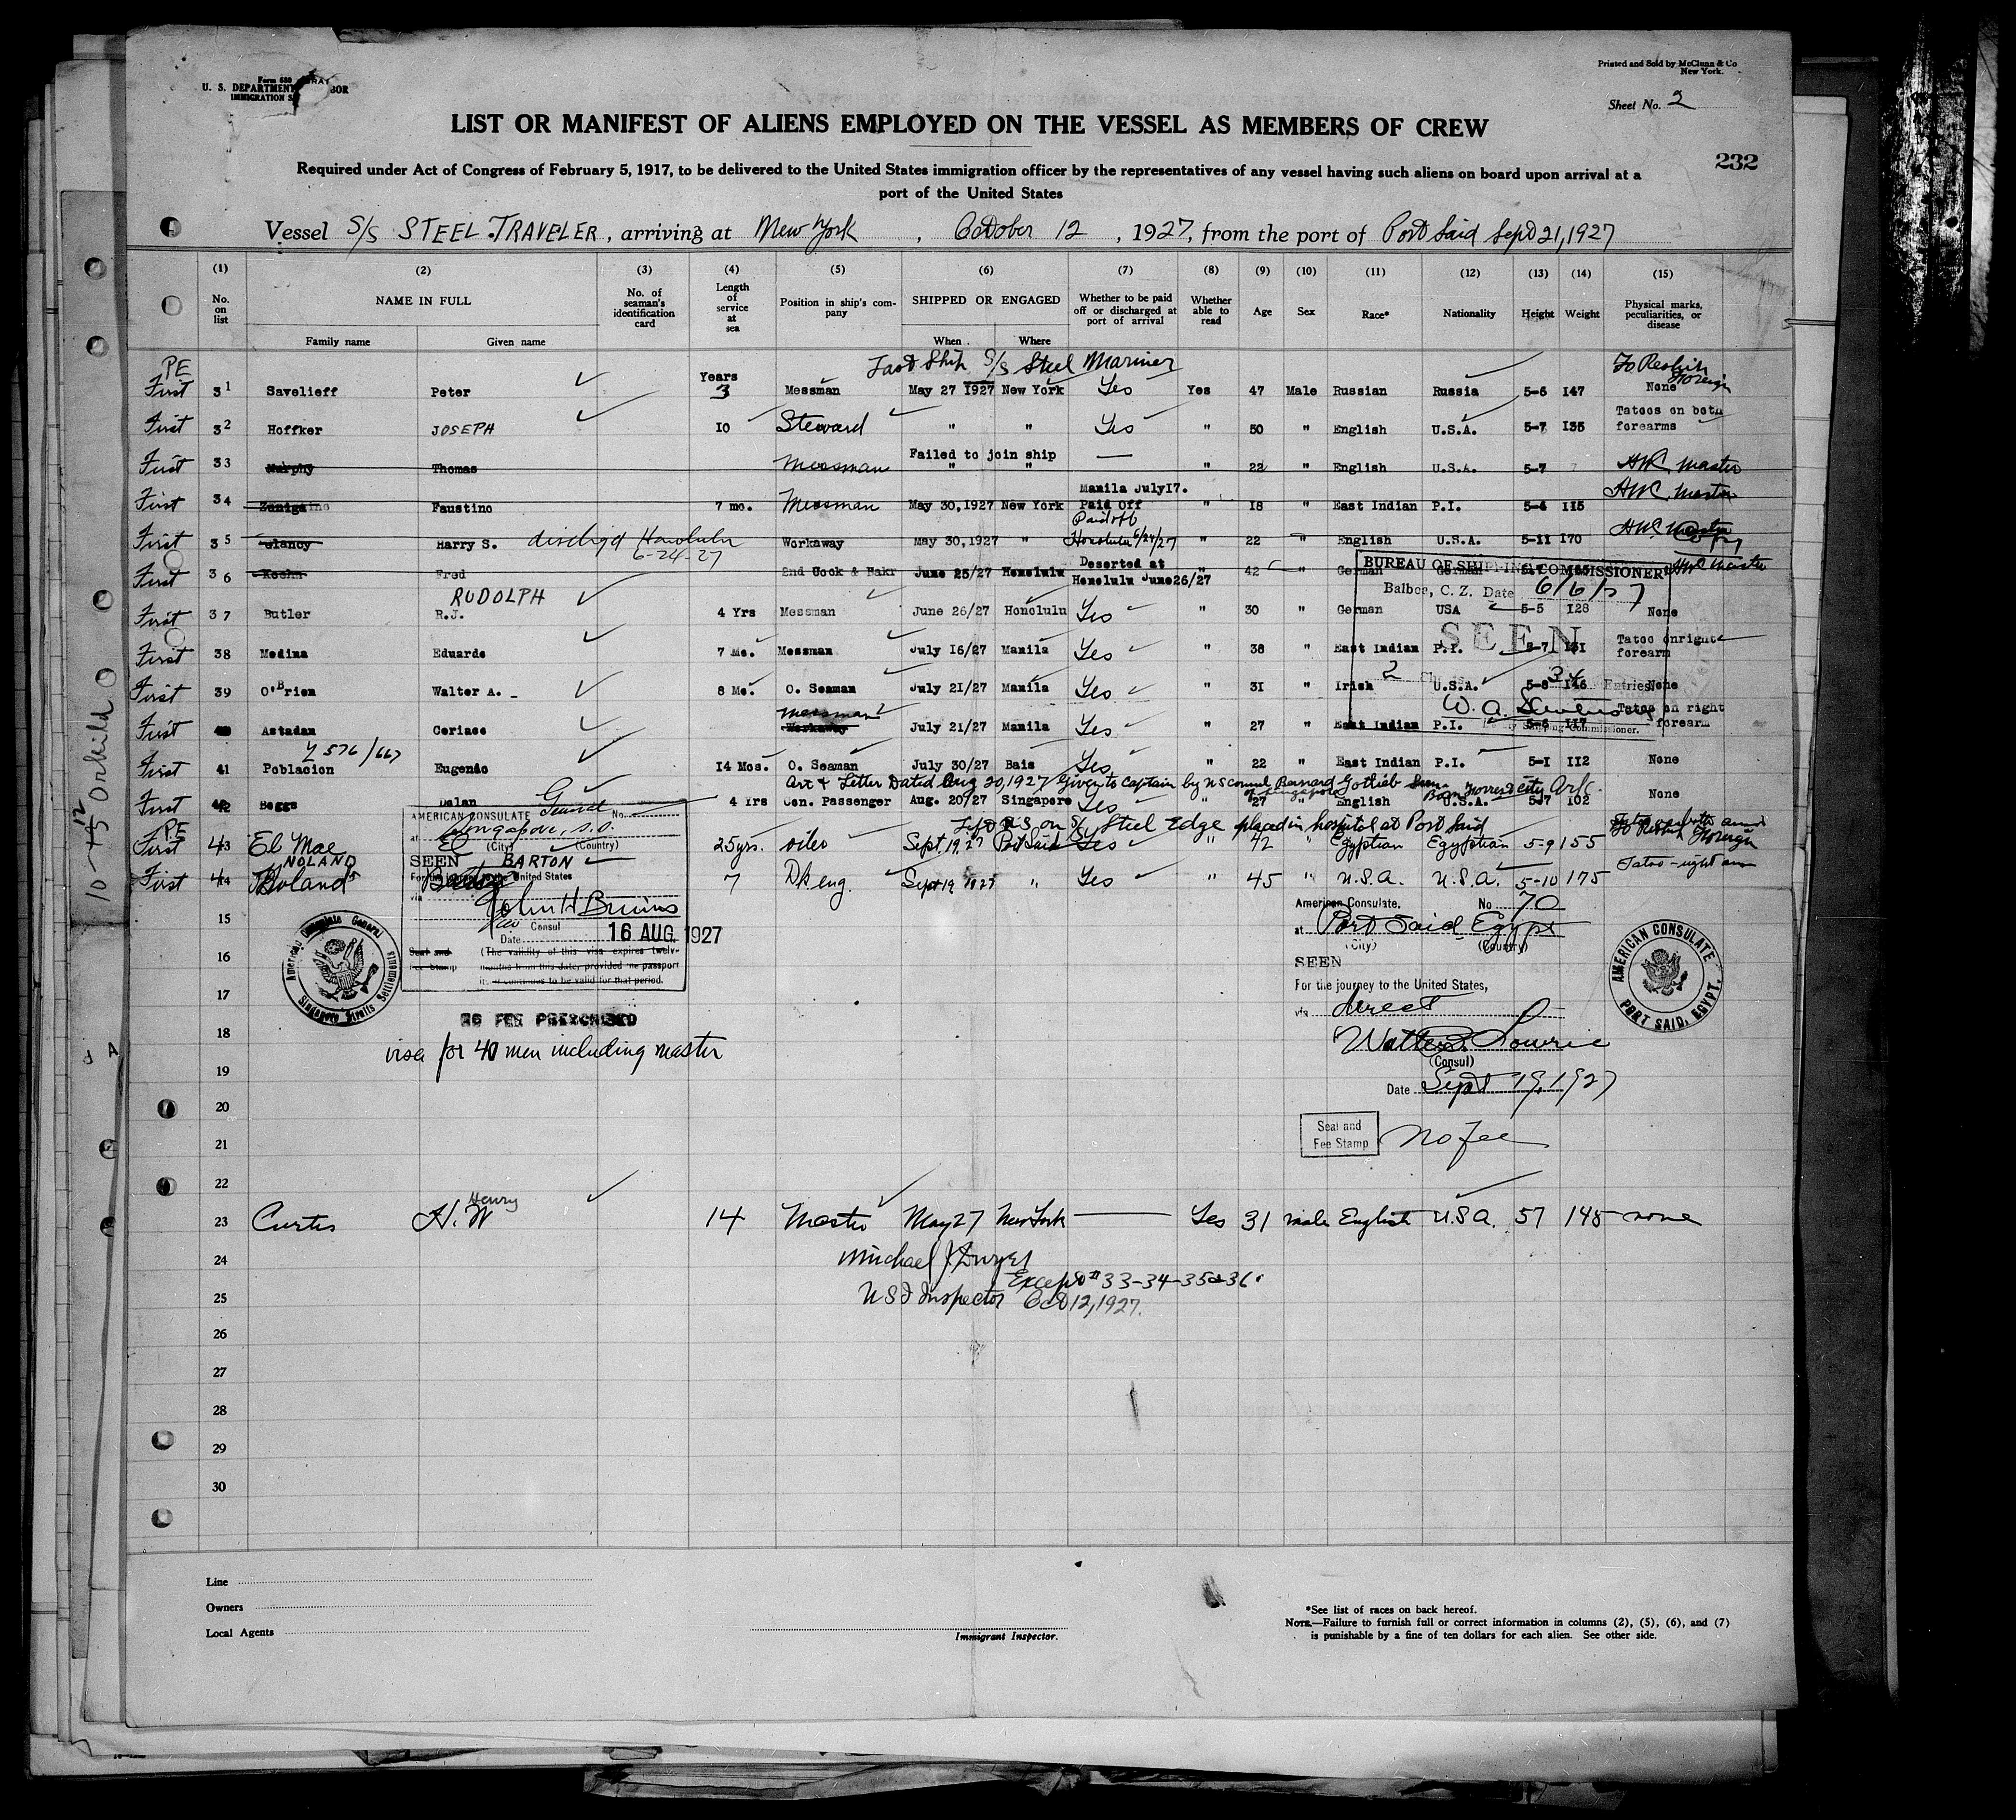 Form 680
U. S. DEPARTMENT
IMMIGRATION
Printed and Sold by McClunn & Co
New York.
Sheet No. 2
LIST OR MANIFEST OF ALIENS EMPLOYED ON THE VESSEL AS MEMBERS OF CREW
232
Required under Act of Congress of February 5, 1917, to be delivered to the United States immigration officer by the representatives of any vessel having such aliens on board upon arrival at a
port of the United States
Vessel S/S STEEL TRAVELER, arriving at New York, October 12, 1927, from the port of Port Said Sept 21, 1927
(1) (2) (3) (4) (5) (6) (7) (8) (9) (10) (11) (12) (13) (14) (15)
No. on list NAME IN FULL Family name Given name No. of seaman's identification card Length of service at sea Position in ship's company SHIPPED OR ENGAGED When Where Whether to be paid off or discharged at port of arrival Whether able to read Age Sex Race* Nationality Height Weight Physical marks, peculiarities, or disease
PE Last Ship S/S Steel Mariner To Reship Foreign
First 31 Savelieff Peter Years 3 Messman May 27 1927 New York Yes Yes 47 Male Russian Russia 5-6 147 None
First 32 Hoffker JOSEPH 10 Steward " " Yes " 50 " English U.S.A. 5-7 135 Tatoos on both forearms
Failed to join ship
First 33 Murphy Thomas Messman " " — " 22 " English U.S.A. 5-7 Master
Manila July 17.
First 34 Zuniga Faustino 7 mo. Messman May 30,1927 New York Paid Off " 18 " East Indian P.I. 5-4 115 Master
Paid off
First 35 Clancy Harry S. disch'gd Honolulu 6-24-27 Workaway May 30,1927 " Honolulu 6/24/27 " 22 " English U.S.A. 5-11 170
First 36 Koehn Fred 2nd Cook & Bakr June 25/27 Honolulu Deserted at Honolulu June26/27 " 42 " German German Master
BUREAU OF SHIPPING COMMISSIONER
Balboa, C. Z. Date 6/6/27
RUDOLPH
First 37 Butler R.J. 4 Yrs Messman June 26/27 Honolulu Yes " 30 " German USA 5-5 128 None
SEEN
First 38 Medina Eduardo 7 Mo. Messman July 16/27 Manila Yes " 38 " East Indian P.I. 5-7 131 Tatoo onright forearm
First 39 O'Brien Walter A. 8 Mo. O. Seaman July 21/27 Manila Yes " 31 " Irish U.S.A. 5-8 146 None
Messman
First 40 Astadan Ceriaco Workaway July 21/27 Manila Yes " 27 " East Indian P.I. 5-6 117 Tatoo on right forearm
Shipping Commissioner.
576/667
First 41 Poblacion Eugenio 14 Mos. O. Seaman July 30/27 Bais Yes " 22 " East Indian P.I. 5-1 112 None
Art & Letter Dated Aug 20, 1927 Given to Captain by US Consul Barnard Gotlieb of Singapore
First 42 Beggs Dolan 4 Yrs Con. Passenger Aug. 20/27 Singapore Yes " 27 " English U.S.A. 5-7 102 None
Left N.S. on S/S Steel Edge placed in hospital at Port Said
PE
First 43 El Mae 25yrs. oiler Sept 19, 27 Port Said Yes " 42 " Egyptian Egyptian 5-9 155 To Reship Foreign
NOLAND BARTON
First 44 7 Dk eng. Sept 19 1927 " Yes " 45 " U.S.A. U.S.A. 5-10 175 Tatoo - right arm
AMERICAN CONSULATE General No.
at Singapore, S.S.
(City) (Country)
SEEN
For the journey to the United States
via
John H Bruins
Vice Consul
Date 16 AUG 1927
Seal and Fee Stamp (The validity of this visa expires twelve months from this date, provided the passport continues to be valid for that period.
American Consulate General
Singapore Straits Settlements
NO FEE PRESCRIBED
visa for 40 men including master
American Consulate. No 70
at Port Said Egypt
(City) (Country)
SEEN
For the journey to the United States,
via direct
(Consul)
Date Sept 19, 1927
Seal and
Fee Stamp
No fee
AMERICAN CONSULATE
PORT SAID, EGYPT.
15
16
17
18
19
20
21
22
Henry
23 Curtis H. W 14 Master May 27 New York — Yes 31 male English U.S.A. 57 145 none
24 Michael J. Dwyer
Except # 33-34-35 & 36
25 USI Inspector Oct 12, 1927.
26
27
28
29
30
Line
Owners
Local Agents
Immigrant Inspector.
*See list of races on back hereof.
NOTE.—Failure to furnish full or correct information in columns (2), (5), (6), and (7)
is punishable by a fine of ten dollars for each alien. See other side.